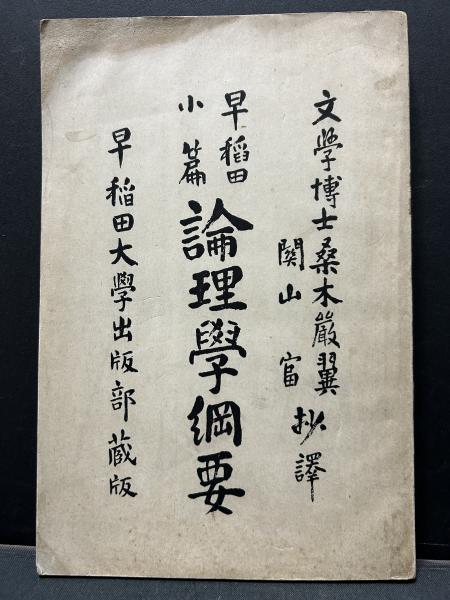 文學博士桑木嚴翼
関山富
抄譯
早稲田
小篇
論理學綱要
早稲田大學出版部蔵版